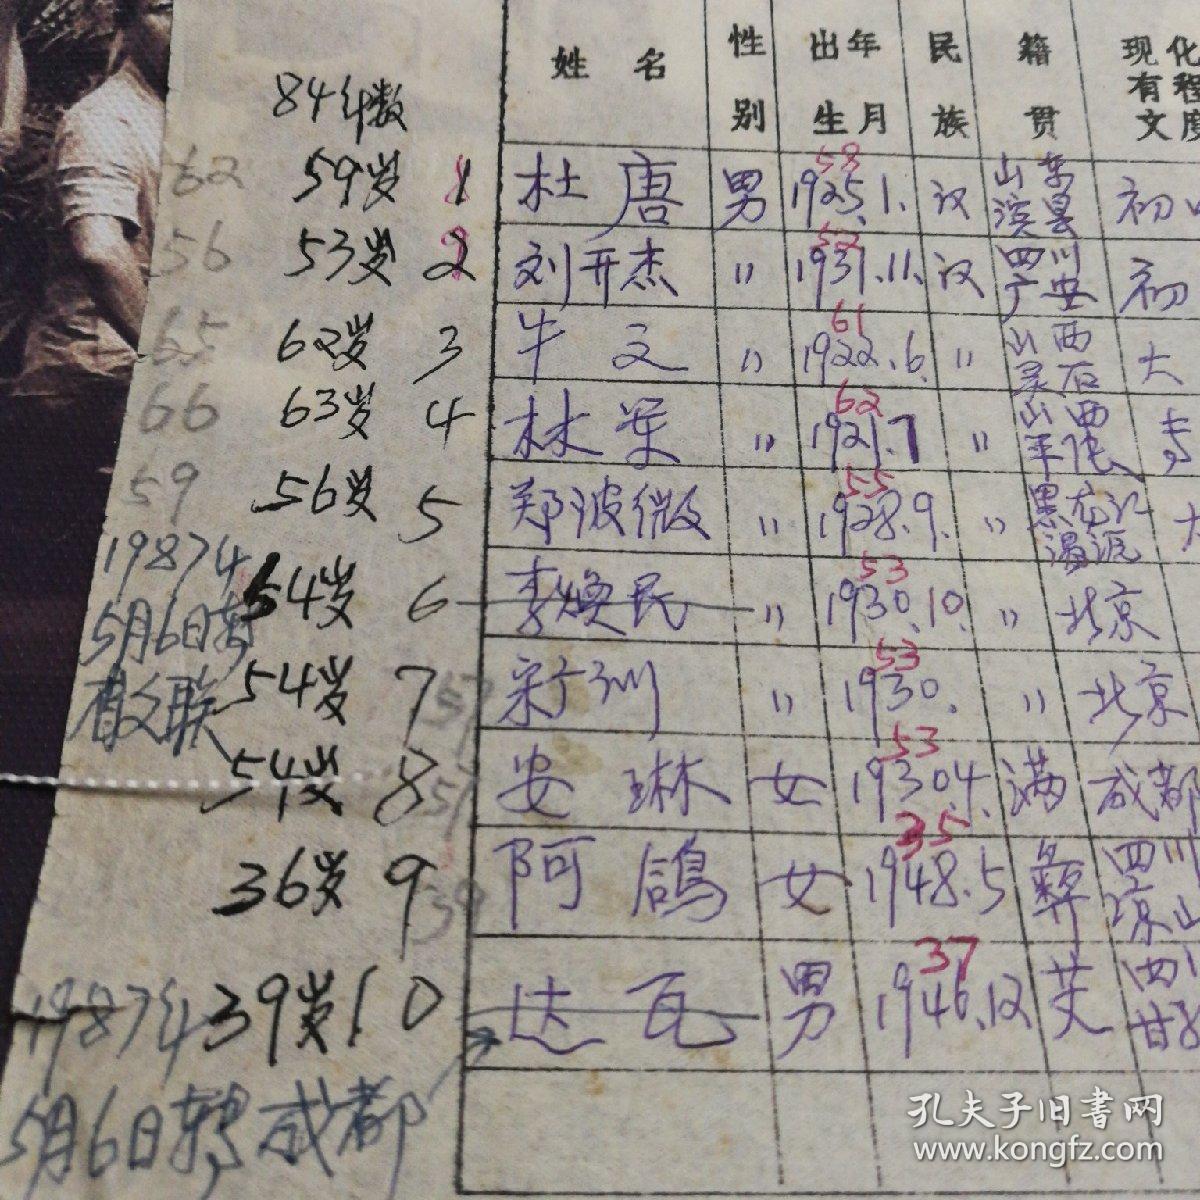 姓名 性别 出生年月 民族 籍贯 现有文化程度
84年数
62 59岁 1 杜唐 男 58 1925.1. 汉 山东 初中
56 53岁 2 刘开杰 〃 52 1931.11. 汉 四川广安 初
65 62岁 3 牛文 〃 61 1922.6. 〃 山西灵石 大
66 63岁 4 林军 〃 62 1921.7 〃 山西平
59 56岁 5 郑波微 〃 55 1928.9. 〃 黑龙江 大
54岁 6 李焕民 〃 53 1930.10. 〃 北京
54岁 7 57 宋广训 〃 53 1930. 〃 北京
54岁 8 57 安琳 女 53 1930.4. 满 成都
36岁 9 39 阿鸽 女 35 1948.5 彝 四川凉山
39岁 10 达瓦 男 37 1946.12 四川甘
1987年
5月6日转
省文联
1987年
5月6日转成都
孔夫子旧书网
www.kongfz.com